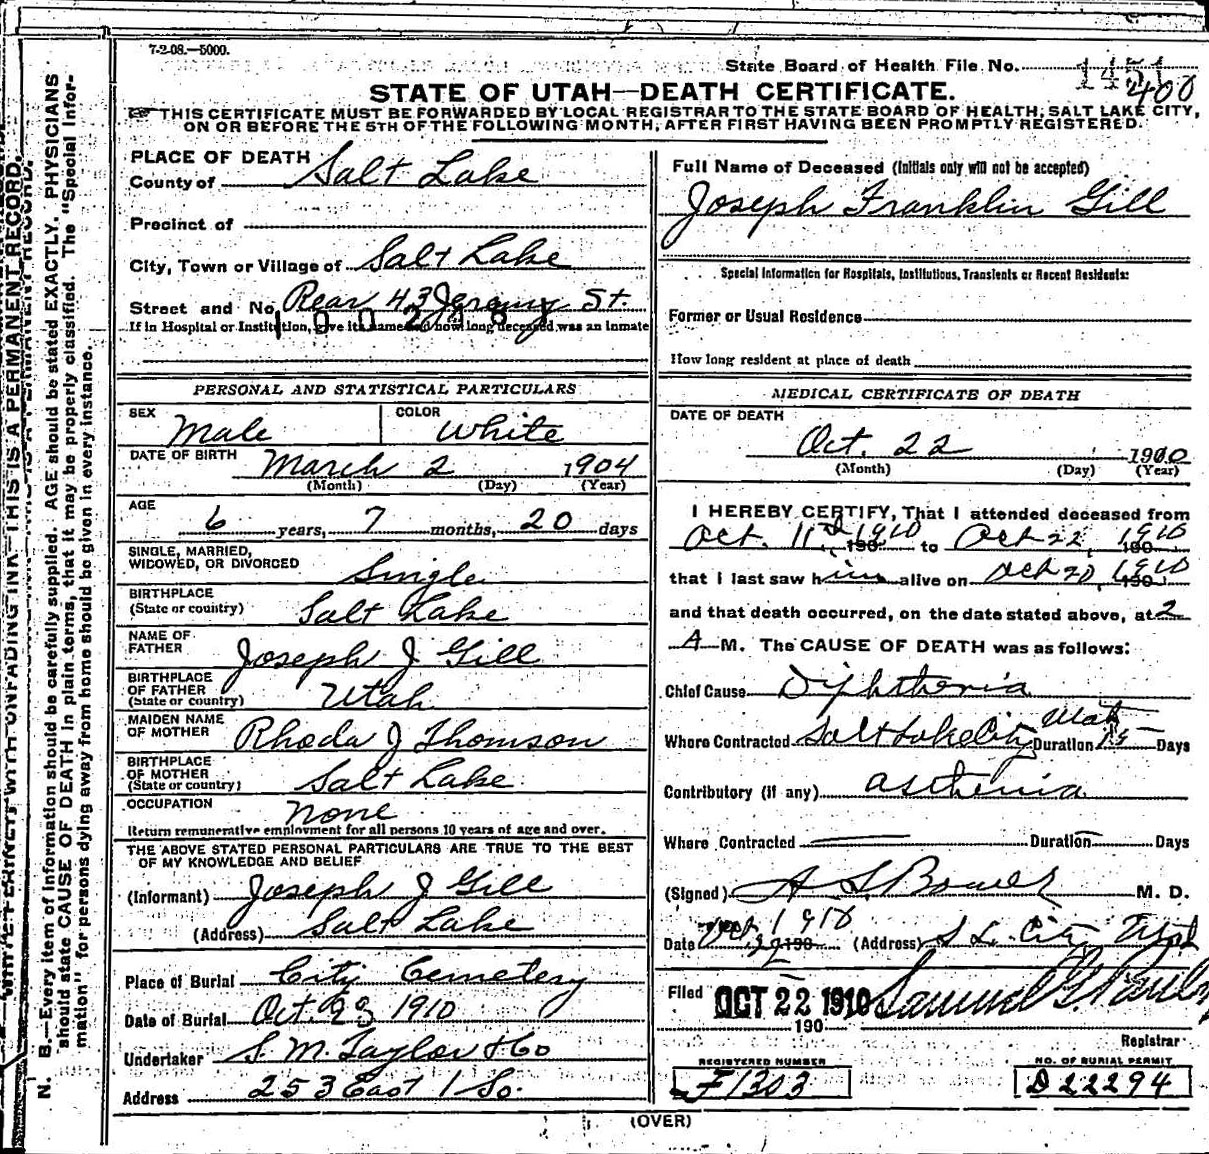 7-2-08.—5000.
State Board of Health File No. 1451
400
STATE OF UTAH—DEATH CERTIFICATE.
THIS CERTIFICATE MUST BE FORWARDED BY LOCAL REGISTRAR TO THE STATE BOARD OF HEALTH, SALT LAKE CITY,
ON OR BEFORE THE 5TH OF THE FOLLOWING MONTH, AFTER FIRST HAVING BEEN PROMPTLY REGISTERED.
PLACE OF DEATH
County of Salt Lake
Precinct of
City, Town or Village of Salt Lake
Street and No. Rear 43 Jeremy St.
If in Hospital or Institution, give its name and how long deceased was an inmate
PERSONAL AND STATISTICAL PARTICULARS
SEX Male COLOR White
DATE OF BIRTH March 2 1904
(Month) (Day) (Year)
AGE
6 years, 7 months, 20 days
SINGLE, MARRIED,
WIDOWED, OR DIVORCED Single
BIRTHPLACE
(State or country) Salt Lake
NAME OF
FATHER Joseph J Gill
BIRTHPLACE
OF FATHER
(State or country) Utah
MAIDEN NAME
OF MOTHER Rhoda J Thomson
BIRTHPLACE
OF MOTHER
(State or country) Salt Lake
OCCUPATION None
Return remunerative employment for all persons 10 years of age and over.
THE ABOVE STATED PERSONAL PARTICULARS ARE TRUE TO THE BEST
OF MY KNOWLEDGE AND BELIEF
(Informant) Joseph J Gill
(Address) Salt Lake
Place of Burial City Cemetery
Date of Burial Oct. 23 1910
Undertaker S. M. Taylor & Co
Address 253 East 1 So.
Full Name of Deceased (Initials only will not be accepted)
Joseph Franklin Gill
Special Information for Hospitals, Institutions, Transients or Recent Residents:
Former or Usual Residence
How long resident at place of death
MEDICAL CERTIFICATE OF DEATH
DATE OF DEATH
Oct. 22 1910
(Month) (Day) (Year)
I HEREBY CERTIFY, That I attended deceased from
Oct. 11 1910 190 to Oct 22, 1910 190
that I last saw him alive on Oct 20, 1910 190
and that death occurred, on the date stated above, at 2
A M. The CAUSE OF DEATH was as follows:
Chief Cause Diphtheria
Where Contracted Salt Lake City Utah Duration 15 Days
Contributory (if any) Asthenia
Where Contracted Duration Days
(Signed) M. D.
Date Oct. 22 1910 190 (Address) S L. City Utah
Filed OCT 22 1910
190
Registrar
REGISTERED NUMBER
F1303
NO. OF BURIAL PERMIT
D22294
(OVER)
N. B.—Every item of information should be carefully supplied. AGE should be stated EXACTLY. PHYSICIANS
should state CAUSE OF DEATH in plain terms, that it may be properly classified. The "Special Infor-
mation" for persons dying away from home should be given in every instance.
WRITE PLAINLY WITH UNFADING INK—THIS IS A PERMANENT RECORD.